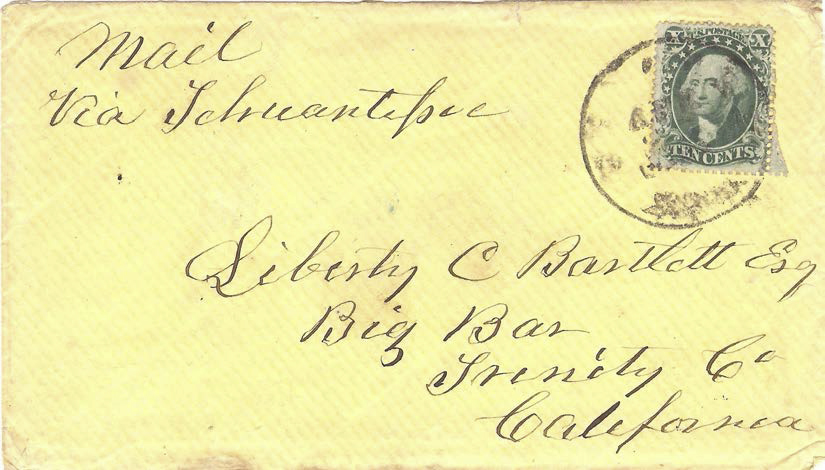 Mail
Via Tehuantepec
X U.S. POSTAGE X
TEN CENTS
Liberty C Bartlett Esq
Big Bar
Trinity Co
California